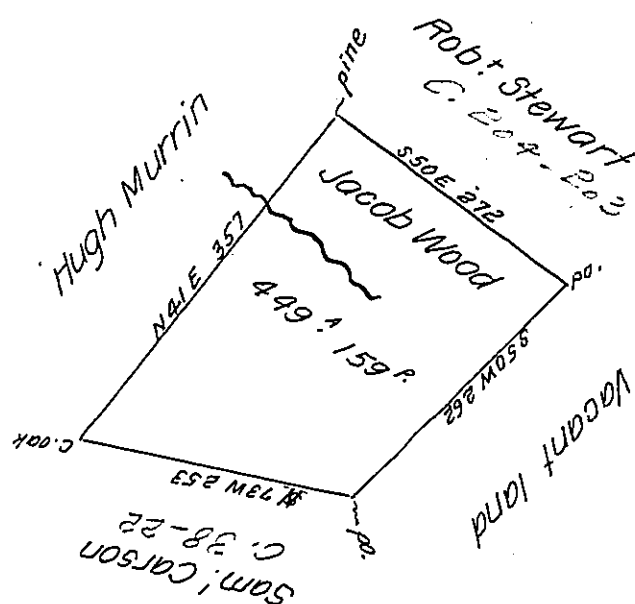 pine
Robt Stewart
C. 204-203
Hugh Murrin
S50E 272
Jacob Wood
N41E 357
449 A 159 P.
po.
S50W 262
Vacant land
C.oak
73W 253
po.
Saml Carson
C. 38-22